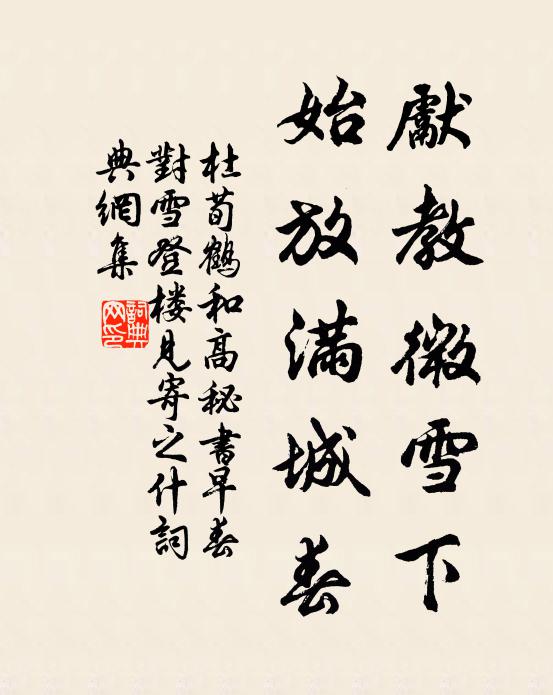 獻教微雪下
始放滿城春
杜荀鶴和高秘書早春
對雪登樓見寄之什詞
典網集
詞典網印